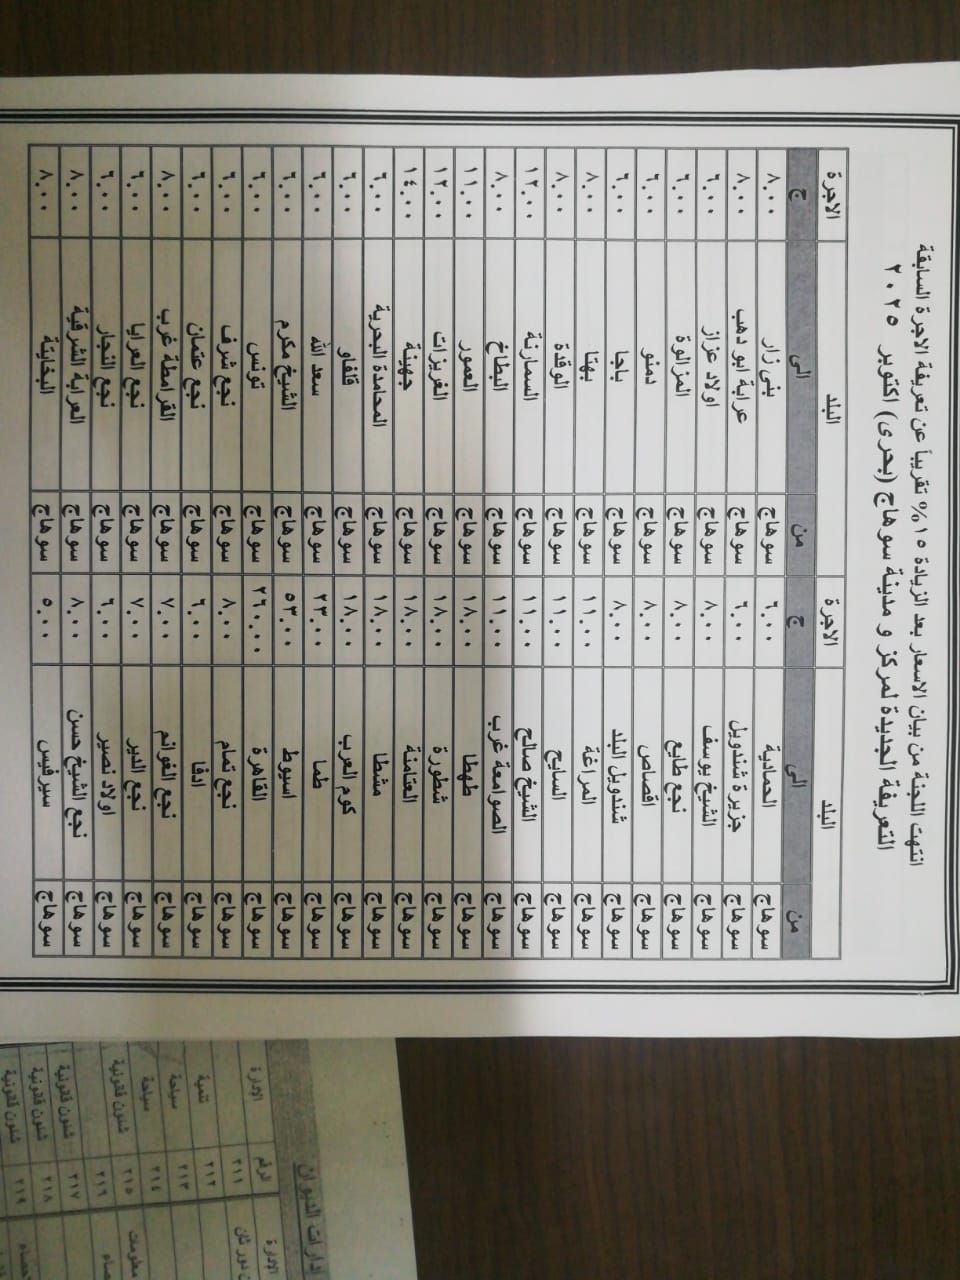 انتهت اللجنة من بيان الاسعار بعد الزيادة ١٥% تقريباً عن تعريفة الاجرة السابقة
التعريفة الجديدة لمركز و مدينة سوهاج (بحرى) اكتوبر ٢٠٢٥
البلد الاجرة البلد الاجرة
من الى ج من الى ج
سوهاج الحمادية ٦.٠٠ سوهاج بنى زار ٨.٠٠
سوهاج جزيرة شندويل ٦.٠٠ سوهاج عرابة ابو دهب ٨.٠٠
سوهاج الشيخ يوسف ٨.٠٠ سوهاج اولاد عزاز ٦.٠٠
سوهاج نجع طايع ٨.٠٠ سوهاج المزالوة ٦.٠٠
سوهاج اقصاص ٨.٠٠ سوهاج دمنو ٦.٠٠
سوهاج شندويل البلد ٨.٠٠ سوهاج باجا ٦.٠٠
سوهاج المراغة ١١.٠٠ سوهاج بهتا ٨.٠٠
سوهاج السايح ١١.٠٠ سوهاج الوقدة ٨.٠٠
سوهاج الشيخ صالح ١١.٠٠ سوهاج السمارنة ١٢.٠٠
سوهاج الصوامعة غرب ١١.٠٠ سوهاج البطاخ ٨.٠٠
سوهاج طهطا ١٨.٠٠ سوهاج العمور ١١.٠٠
سوهاج شطورة ١٨.٠٠ سوهاج الغريزات ١٢.٠٠
سوهاج العتامنة ١٨.٠٠ سوهاج جهينة ١٤.٠٠
سوهاج مشطا ١٨.٠٠ سوهاج المحامدة البحرية ٦.٠٠
سوهاج كوم العرب ١٨.٠٠ سوهاج قلفاو ٦.٠٠
سوهاج طما ٢٣.٠٠ سوهاج سعد الله ٦.٠٠
سوهاج اسيوط ٥٣.٠٠ سوهاج الشيخ مكرم ٦.٠٠
سوهاج القاهرة ٢٦٠.٠٠ سوهاج تونس ٦.٠٠
سوهاج نجع تمام ٨.٠٠ سوهاج نجع شرف ٦.٠٠
سوهاج ادفا ٦.٠٠ سوهاج نجع عتمان ٦.٠٠
سوهاج نجع الغوانم ٧.٠٠ سوهاج القرامطة غرب ٨.٠٠
سوهاج نجع الدير ٧.٠٠ سوهاج نجع العرايا ٦.٠٠
سوهاج اولاد نصير ٦.٠٠ سوهاج نجع النجار ٦.٠٠
سوهاج نجع الشيخ حسن ٨.٠٠ سوهاج العرابة الشرقية ٨.٠٠
سوهاج سيرفيس ٥.٠٠ سوهاج البخايتة ٨.٠٠
الديوان
الإدارة الرقم الإدارة
٢١١
٢١٢ تنمية
٢١٣ سياحة
٢١٤ سياحة
٢١٥ شئون قانونية
٢١٦
٢١٧ شئون قانونية
٢١٨ شئون قانونية
٢١٩ شئون قانونية